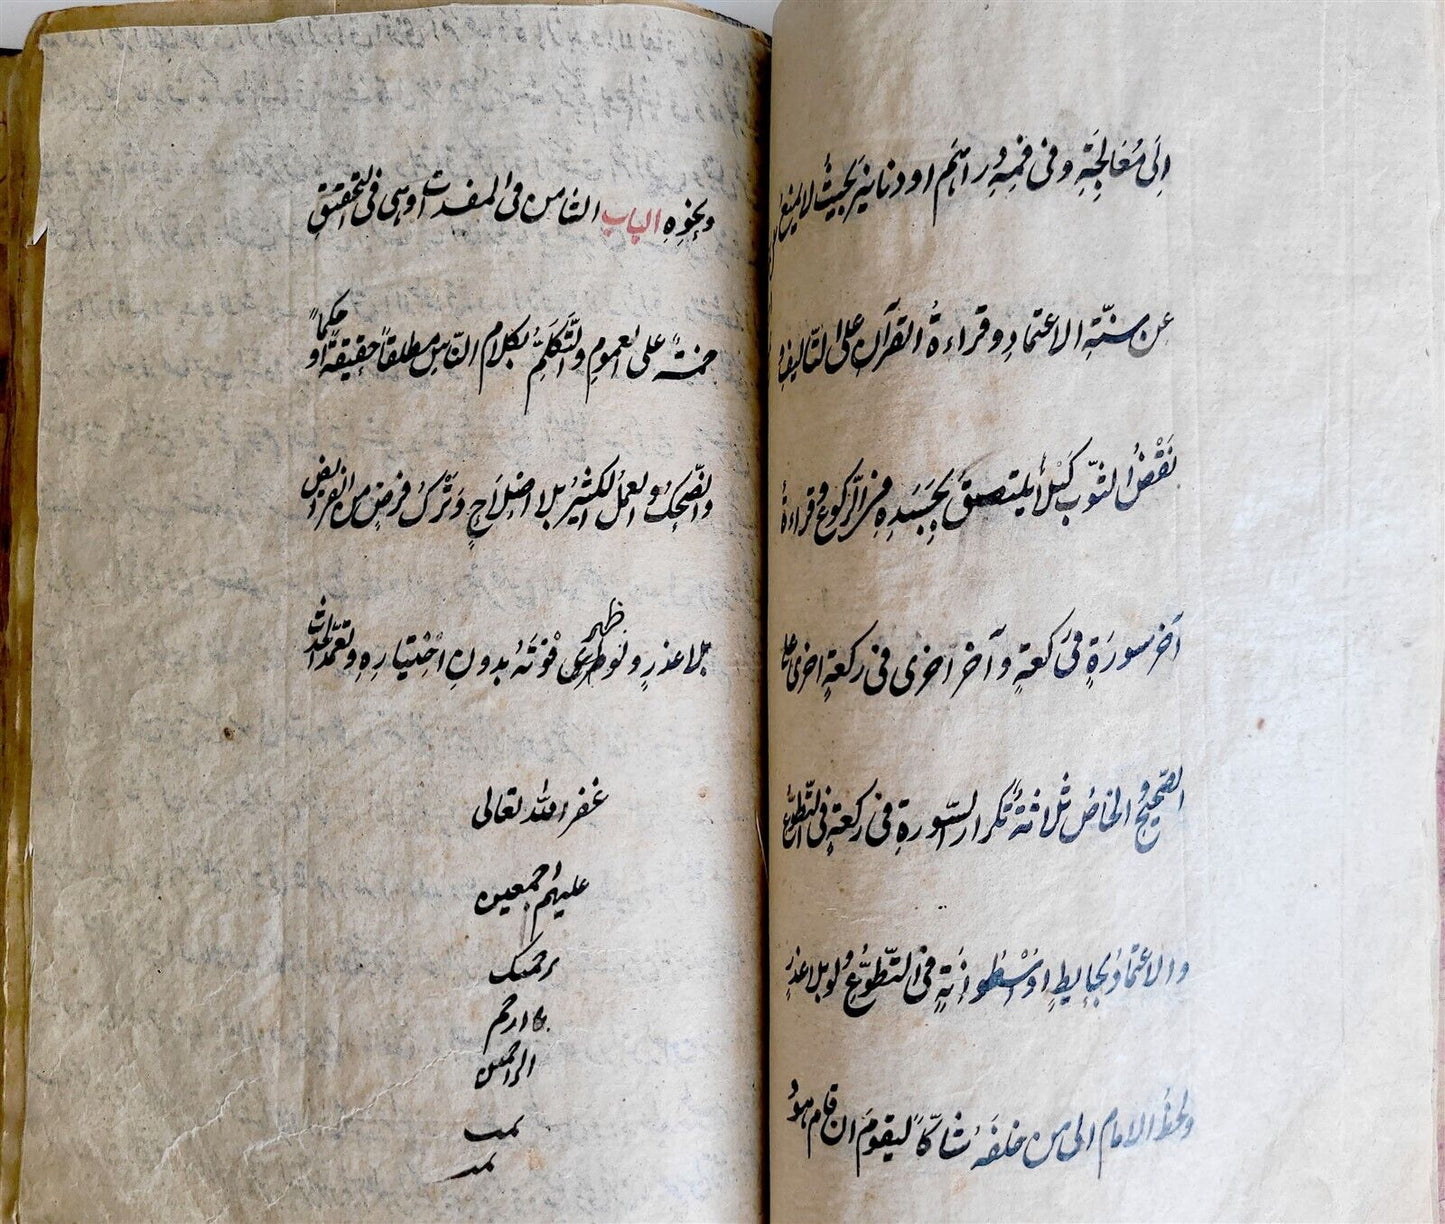 الَى مُعَالِجَةٍ وفى فمِهِ دراهَم او دنانيرَ بحيثُ لا يمنع
عن سنّةِ الاعتمادِ وقراءةُ القرآن على التاليف و
نَفْضُ الثّوب كَيْلاَ يلتصقَ بجَسَدِهِ فى الرّكوع وقراءةُ
آخر سورَةٍ فى ركعةٍ وآخر اخرى فى ركعةٍ اخرى على
الصّحيحِ والخامسُ ثلاثةٌ تكرار السّورةِ فى ركعةٍ فى التّطوّع
والاعتمادُ بحايطٍ او اُسْطُوانَةٍ فى التّطوّعِ ولو بلا عذرٍ
ولحظُ الامام الى من خلفَهُ شاكّاً ليقومَ ان قام هوُ
ونحوِهِ الباب الثامن فى المفسدات وهى فى التحقيق
خمسةٌ على العمومِ والتَّكَلّمُ بكلام النّاس مطلقاً حقيقةً او حكماً
والضّحِكُ والعملُ الكثيرُ بلا اصْلاَحٍ وَتَرْكُ فرضٍ من الفرايض
بلا عذرٍ ولو ظهرى فَوْتَهُ بدون اخْتيارِهِ وتعمّد الحدث
غفر الله تعالى
عليهم اجمعين
برحمتك
يا ارحم
الراحمين
تمت